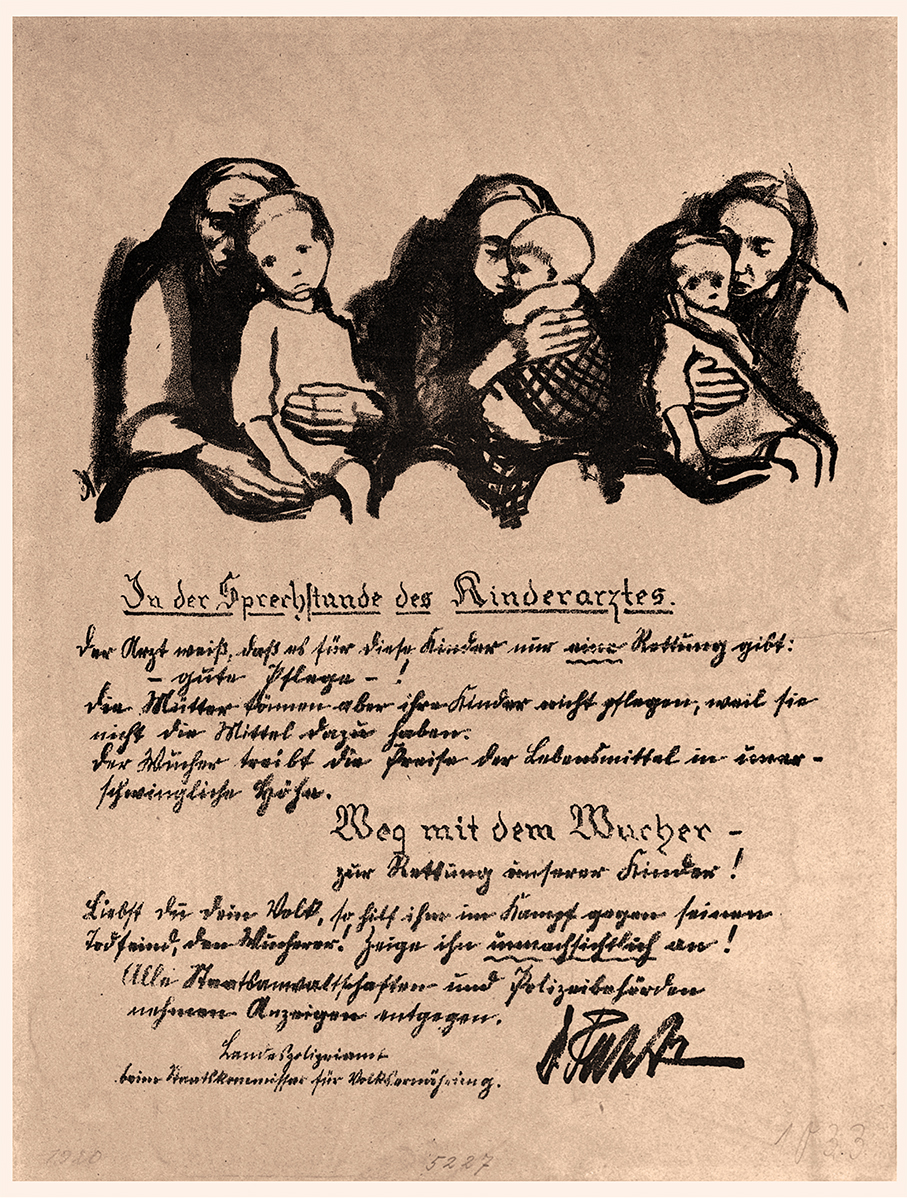 In der Sprechstunde des Kinderarztes.
Der Arzt weiß, daß es für diese Kinder nur eine Rettung gibt:
- gute Pflege - !
Die Mütter können aber ihre Kinder nicht pflegen, weil sie
nicht die Mittel dazu haben.
Der Wucher treibt die Preise der Lebensmittel in uner-
schwingliche Höhe.
Weg mit dem Wucher -
zur Rettung unserer Kinder!
Liebst du dein Volk, so hilf ihm im Kampf gegen seinen
Todfeind, den Wucherer. Zeige ihn unnachsichtlich an!
Alle Staatsanwaltschaften und Polizeibehörden
nehmen Anzeigen entgegen.
Landespolizeiamt
beim Staatskommissar für Volksernährung.
1920
5227